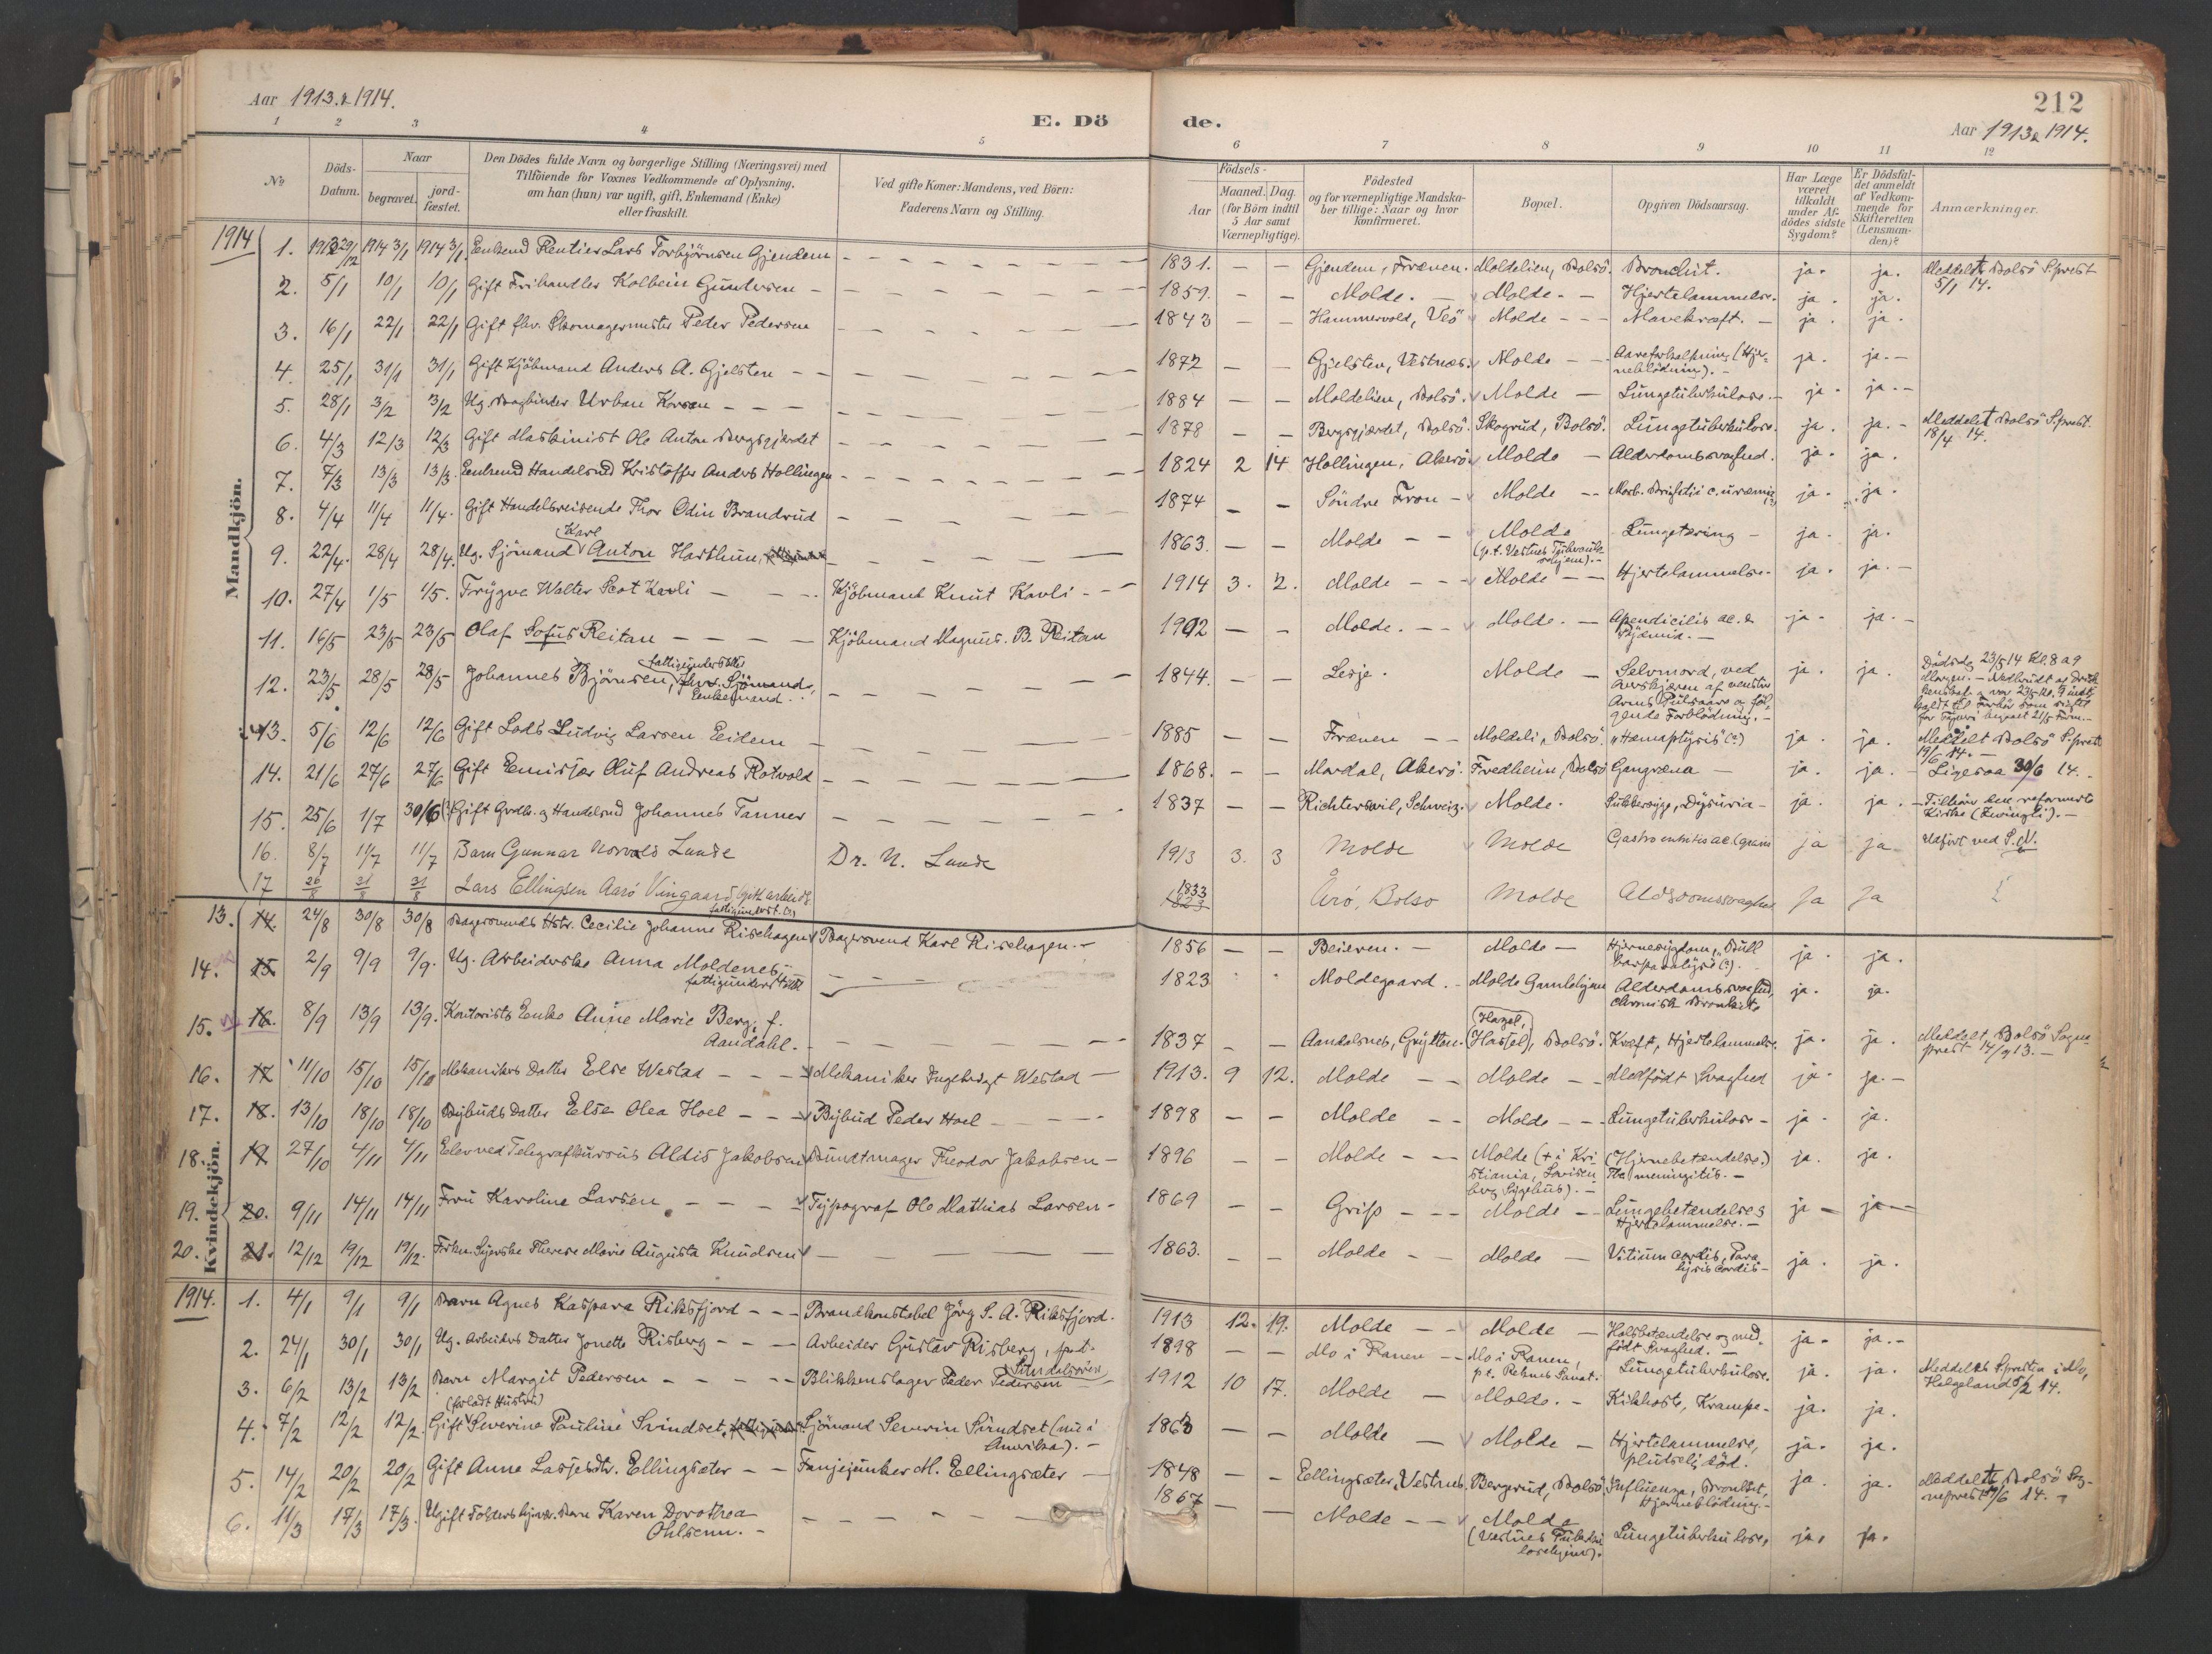 Aar 1913 & 1914.
E. Dö
de.
212
Aar 1913 & 1914.
1 2 3 4 5 6 7 8 9 10 11 12
No
Döds-Datum.
Naar
begravet.
jord-fæstet.
Den Dödes fulde Navn og borgerlige Stilling (Næringsvei) med
Tilföiende for Voxnes Vedkommende af Oplysning,
om han (hun) var ugift, gift, Enkemand (Enke)
eller fraskilt.
Ved gifte Koner: Mandens, ved Börn:
Faderens Navn og Stilling.
Födsels-
Aar
Maaned. Dag.
(for Börn indtil
5 Aar samt
Værnepligtige).
Födested
og for værnepligtige Mandska-
ber tillige: Naar og hvor
konfirmeret.
Bopæl.
Opgiven Dödsaarsag.
Har Læge
været
tilkaldt
under Af-
dödes sidste
Sygdom?
Er Dödsfal-
det anmeldt
af Vedkom-
mende for
Skifteretten
(Lensman-
den)?
Anmærkninger.
Mandkjön.
1914 1. 1913 29/12 1914 3/1 1914 3/1 Enkemd Rentier Lars Torbjörnsen Gjendem - 1831. - - Gjendem, Fræven. Moldelien, Bolsö. Bronchit. ja. ja. Meddelt Bolsö S.prest 5/1 14.
2. 5/1 10/1 10/1 Gift Frihandler Kolbein Gundersen - 1859. - - Molde. - Molde. - Hjertelammelse. ja. ja.
3. 16/1 22/1 22/1 Gift fhv. Skomagermester Peder Pedersen - 1843 - - Hammervold, Veö Molde - - Mavekræft. - ja. ja.
4. 25/1 31/1 31/1 Gift Kjöbmand Anders A. Gjelsten - 1872 - - Gjelsten, Vestnæs. Molde - - Aareforkalkning (Hjerneblödning). - ja. ja. -
5. 28/1 3/2 3/2 Ug. Bogbinder Urban Korsen - 1884 - - Moldelien, Bolsö. Molde - Lungetuberkulose. - ja. ja. -
6. 4/3 12/3 12/3 Gift Maskinist Ole Anton Bergsgjerdet - 1878 - - Bergsgjærdet, Bolsö. Skogrud, Bolsö. Lungetuberkulose. ja. ja. - Meddelt Bolsö S.prest. 18/4 14.
7. 7/3 13/3 13/3. Enkemd Handelsmd Kristoffer Anders Hollingen - 1824 2 14 Hollingen, Akerö. Molde - Alderdomssvaghed. ja. ja.
8. 4/4 11/4 11/4. Gift Handelsreisende Thor Odin Brandrud - 1874 - - Söndre Fron - Molde - - Morb. Brightii c. uræmi ja. ja.
9. 22/4. 28/4 28/4. Ug. Sjömand Karl Anton Harthun, - 1863. - - Molde - - Molde (p.t. Vestnes Tuberkulosehjem). - Lungetæring - ja. ja.
10. 27/4 1/5 1/5. Trygve Walter Scot Kavli - Kjöbmand Knut Kavli - 1914 3. 2. Molde - - Molde - - Hjertelammelse. ja. ja. -
11. 16/5 23/5 23/5 Olaf Sofus Reitan - Kjöbmand Magnus. B. Reitan 1902 - - Molde. - - Molde. - Apendicilis ac. & Pyæmia. - ja. ja. -
12. 23/5 28/5 28/5 Johannes Björnsen, fattigunderstöttet fhv. Sjömand, Enkemand. - 1844. - - Lesje. Molde - Selvmord, ved Overskjæren af venstre Arms Pulsaare og fölgende Forblödning. - ja. ja. Dödsdag 23/5 14 Kl. 8 a 9 Morgen. -
13. 5/6 12/6 12/6 Gift Lods Ludvig Larsen Eidem - 1885 - - Fræven - - Moldeli, Bolsö "Hæmaptysis" (?) ja. ja. Meddelt Bolsö S.prest 19/6 14. -
14. 21/6 27/6 27/6 Gift Emissær Oluf Andreas Rotvold - 1868. - - Mordal, Akerö. Fredheim, Bolsö Gangræna - ja. ja. - Ligesaa 30/6 14. -
15. 25/6 1/7 30/6 Gift Grdbr. og Handelsmd Johannes Tanner - 1837 - - Richterswil, Schweiz. Molde. Sukkersyge, Dysuria - ja. ja. - Tilhörer den reformerte Kirke (Zwingli). -
16. 8/7 11/7 11/7 Barn Gunnar Norvald Lunde Dr. N. Lunde 1913 3. 3 Molde Molde Gastro enteritis ac. (gravis ja ja. Utfört ved S. N.
17 26/8 31/8 31/8 Lars Ellingsen Aarö Vingaard (gift arbeid. fattigunderst. (?) 1833 Årö, Bolsö Molde Alderdomssvaghed ja ja
Kvindekjön.
13. 14. 24/8 30/8 30/8 Bagersvends Hstr. Cecilie Johanne Risehagen Bagersvend Karl Risehagen. - 1856 - - Beieren. - Molde - Hjernesygdom, "Bulbærparalyse" (?). - ja. ja.
14. 15 2/9 9/9 9/9. Ug. Arbeiderske Anna Moldenes - fattigunderstöttet - 1823 Moldegaard. - Molde Gamlehjem Alderdomssvaghed, chronisk Bronkite ja. ja.
15. 16. 8/9 13/9 13/9. Kontorists Enke Anne Marie Berg, f. Aandahl. - 1837 - - Aandalsnes, Grytten. (Hassel), Bolsö. Kræft, Hjertelammelse. ja. ja. Meddelt Bolsö Sogneprest 14/9 13. -
16. 17 11/10 15/10 15/10 Mekanikers Datter Else Westad - Mekaniker Ingebrigt Westad - 1913. 9 12. Molde - - Molde - - Medfödt Svaghed ja - ja. -
17. 18. 13/10 18/10 18/10 Bybuds Datter Else Olea Hoel - Bybud Peder Hoel - 1898 - - Molde - - Molde - - Lungetuberkulose - ja - ja.
18. 19 27/10 4/11 4/11 Elev ved Telegrafkursus Aldis Jakobsen Bundtmager Theodor Jakobsen - 1896 - - Molde - - Molde (+ i Kristiania, Lovisenberg Sygehus). - (Hjernebetændelse.) Tb. meningitis. - ja. ja.
19. 20. 9/11 14/11 14/11 Fru Karoline Larsen - Typograf Ole Mathias Larsen - 1869 - - Grip - - - Molde - - Lungebetændelse & Hjertelammelse. - ja - ja -
20. 21. 12/12 19/12 19/12. Frkn. Syerske Therese Marie Augusta Knudsen - 1863. - - Molde - - Molde - Vitium cordis, Paralysis cordis - ja. ja.
1914. 1. 4/1 9/1 9/1 Barn Agnes Kaspara Riksfjord - - Brandkonstabel Jörg S. A. Riksfjord. 1913 12. 19. Molde - - Molde - Halsbetændelse og medfödt Svaghed. - ja - ja. -
2. 24/1 30/1 30/1 Ug. Arbeiders Datter Jonette Risberg - - Arbeider Gustav Risberg, 1898 - - Mo i Ranen - - Mo i Ranen, p.t. Reknes Sanat. Lungetuberkulose. ja. ja. Meddelt S.presten i Mo, Helgeland 5/2 14.
3. 6/2 13/2 13/2 Barn Margit Pedersen - Blikkenslager Peder Pedersen 1912 10 17. Molde - Molde. - Kikhoste, Krampe - ja. ja.
4. 7/2 12/2 12/2. (forladt Hustru) Gift Severine Pauline Svindset, Sjömand Severin Svindset (nu i Amerika). - 1863 - - Molde - Molde - Hjertelammelse, plutselig död. ja. ja.
5. 14/2 20/2 20/2 Gift Anne Lasjesdtr. Ellingsæter - - Fanejunker M. Ellingsæter - 1848 - - Ellingsæter, Vestnes. Bergerud, Bolsö. Influenza, Bronkit, Hjerneblödning. - ja. ja. Meddelt Bolsö Sogneprest 14. -
6. 11/3 17/3 17/3. Ugift Karen Dorothea Ohlsenn. - 1867 - - Molde - - Molde (Vestnes Tuberkulosehjem). Lungetuberkulose, ja. ja.